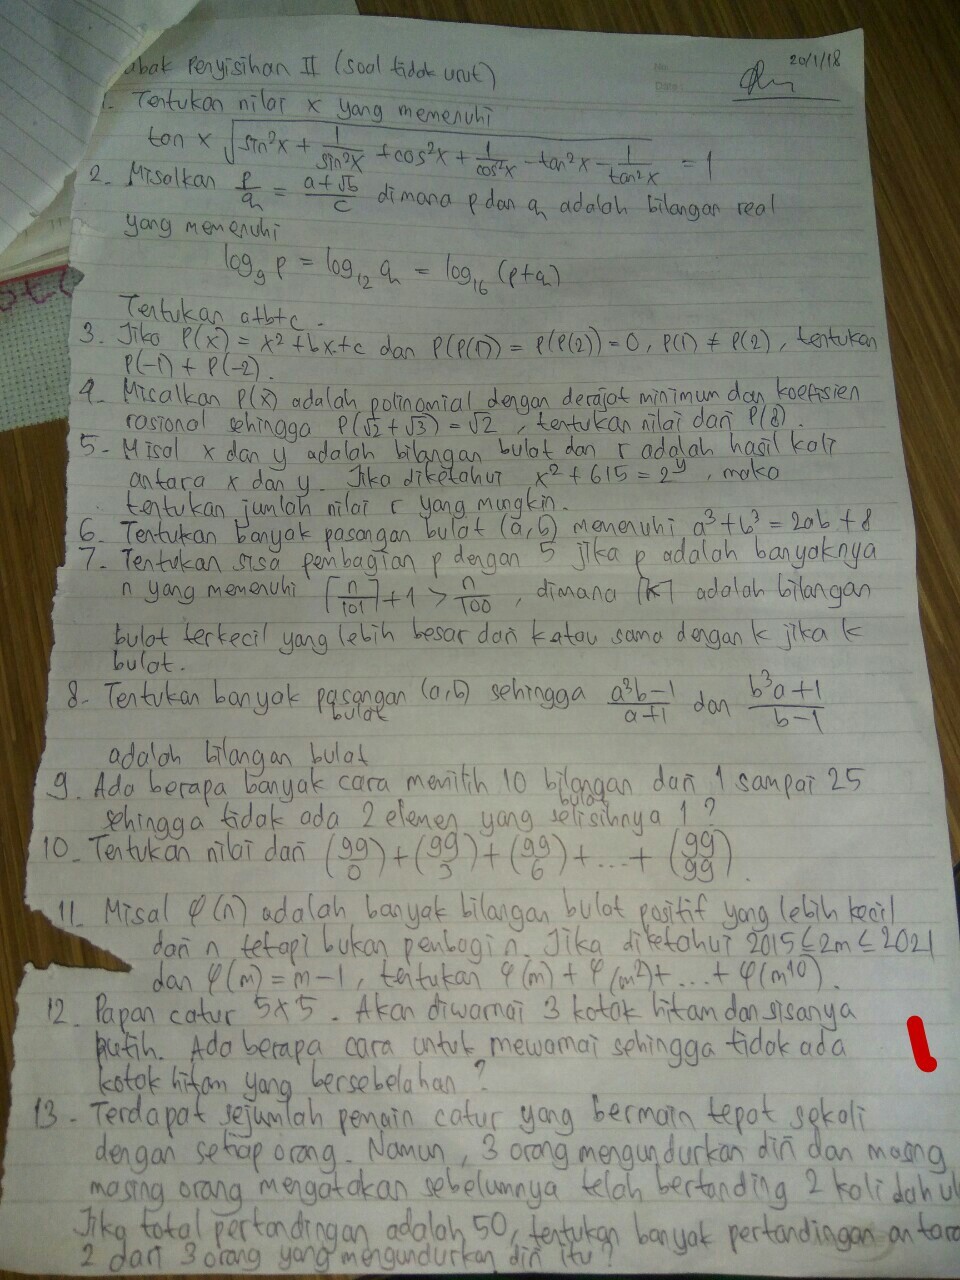 20/1/18
abak Penyisihan II (soal tidak urut)
1. Tentukan nilai x yang memenuhi
tan x √(sin²x + 1/sin²x + cos²x + 1/cos²x - tan²x - 1/tan²x) = 1
2. Misalkan p/q = (a+√b)/c dimana p dan q adalah bilangan real
yang memenuhi
log₉ p = log₁₂ q = log₁₆ (p+q)
Tentukan a+b+c.
3. Jika P(x) = x² + bx + c dan P(P(1)) = P(P(2)) = 0, P(1) ≠ P(2), tentukan
P(-1) + P(-2).
4. Misalkan P(x) adalah polinomial dengan derajat minimum dan koefisien
rasional sehingga P(√2 + √3) = √2, tentukan nilai dari P(8).
5. Misal x dan y adalah bilangan bulat dan r adalah hasil kali
antara x dan y. Jika diketahui x² + 615 = 2^y, maka
tentukan jumlah nilai r yang mungkin.
6. Tentukan banyak pasangan bulat (a,b) memenuhi a³+b³ = 2ab + 8
7. Tentukan sisa pembagian p dengan 5 jika p adalah banyaknya
n yang memenuhi ⌈n/101⌉ + 1 > n/100, dimana ⌈k⌉ adalah bilangan
bulat terkecil yang lebih besar dari k atau sama dengan k jika k
bulat.
8. Tentukan banyak pasangan bulat (a,b) sehingga (a³b-1)/(a+1) dan (b³a+1)/(b-1)
adalah bilangan bulat
9. Ada berapa banyak cara memilih 10 bilangan bulat dari 1 sampai 25
sehingga tidak ada 2 elemen yang selisihnya 1?
10. Tentukan nilai dari (99 0) + (99 3) + (99 6) + ... + (99 99).
11. Misal φ(n) adalah banyak bilangan bulat positif yang lebih kecil
dari n tetapi bukan pembagi n. Jika diketahui 2015 ≤ 2m ≤ 2021
dan φ(m) = m-1, tentukan φ(m) + φ(m²) + ... + φ(m¹⁰).
12. Papan catur 5x5. Akan diwarnai 3 kotak hitam dan sisanya
putih. Ada berapa cara untuk mewarnai sehingga tidak ada
kotak hitam yang bersebelahan?
13. Terdapat sejumlah pemain catur yang bermain tepat sekali
dengan setiap orang. Namun, 3 orang mengundurkan diri dan masing
masing orang mengatakan sebelumnya telah bertanding 2 kali dahul
Jika total pertandingan adalah 50, tentukan banyak pertandingan antara
2 dari 3 orang yang mengundurkan diri itu?